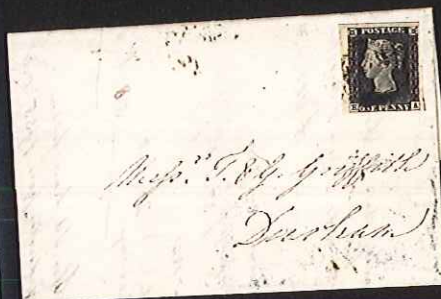 POSTAGE
E ONE PENNY A
Messrs. T. & G. Griffith
Durham